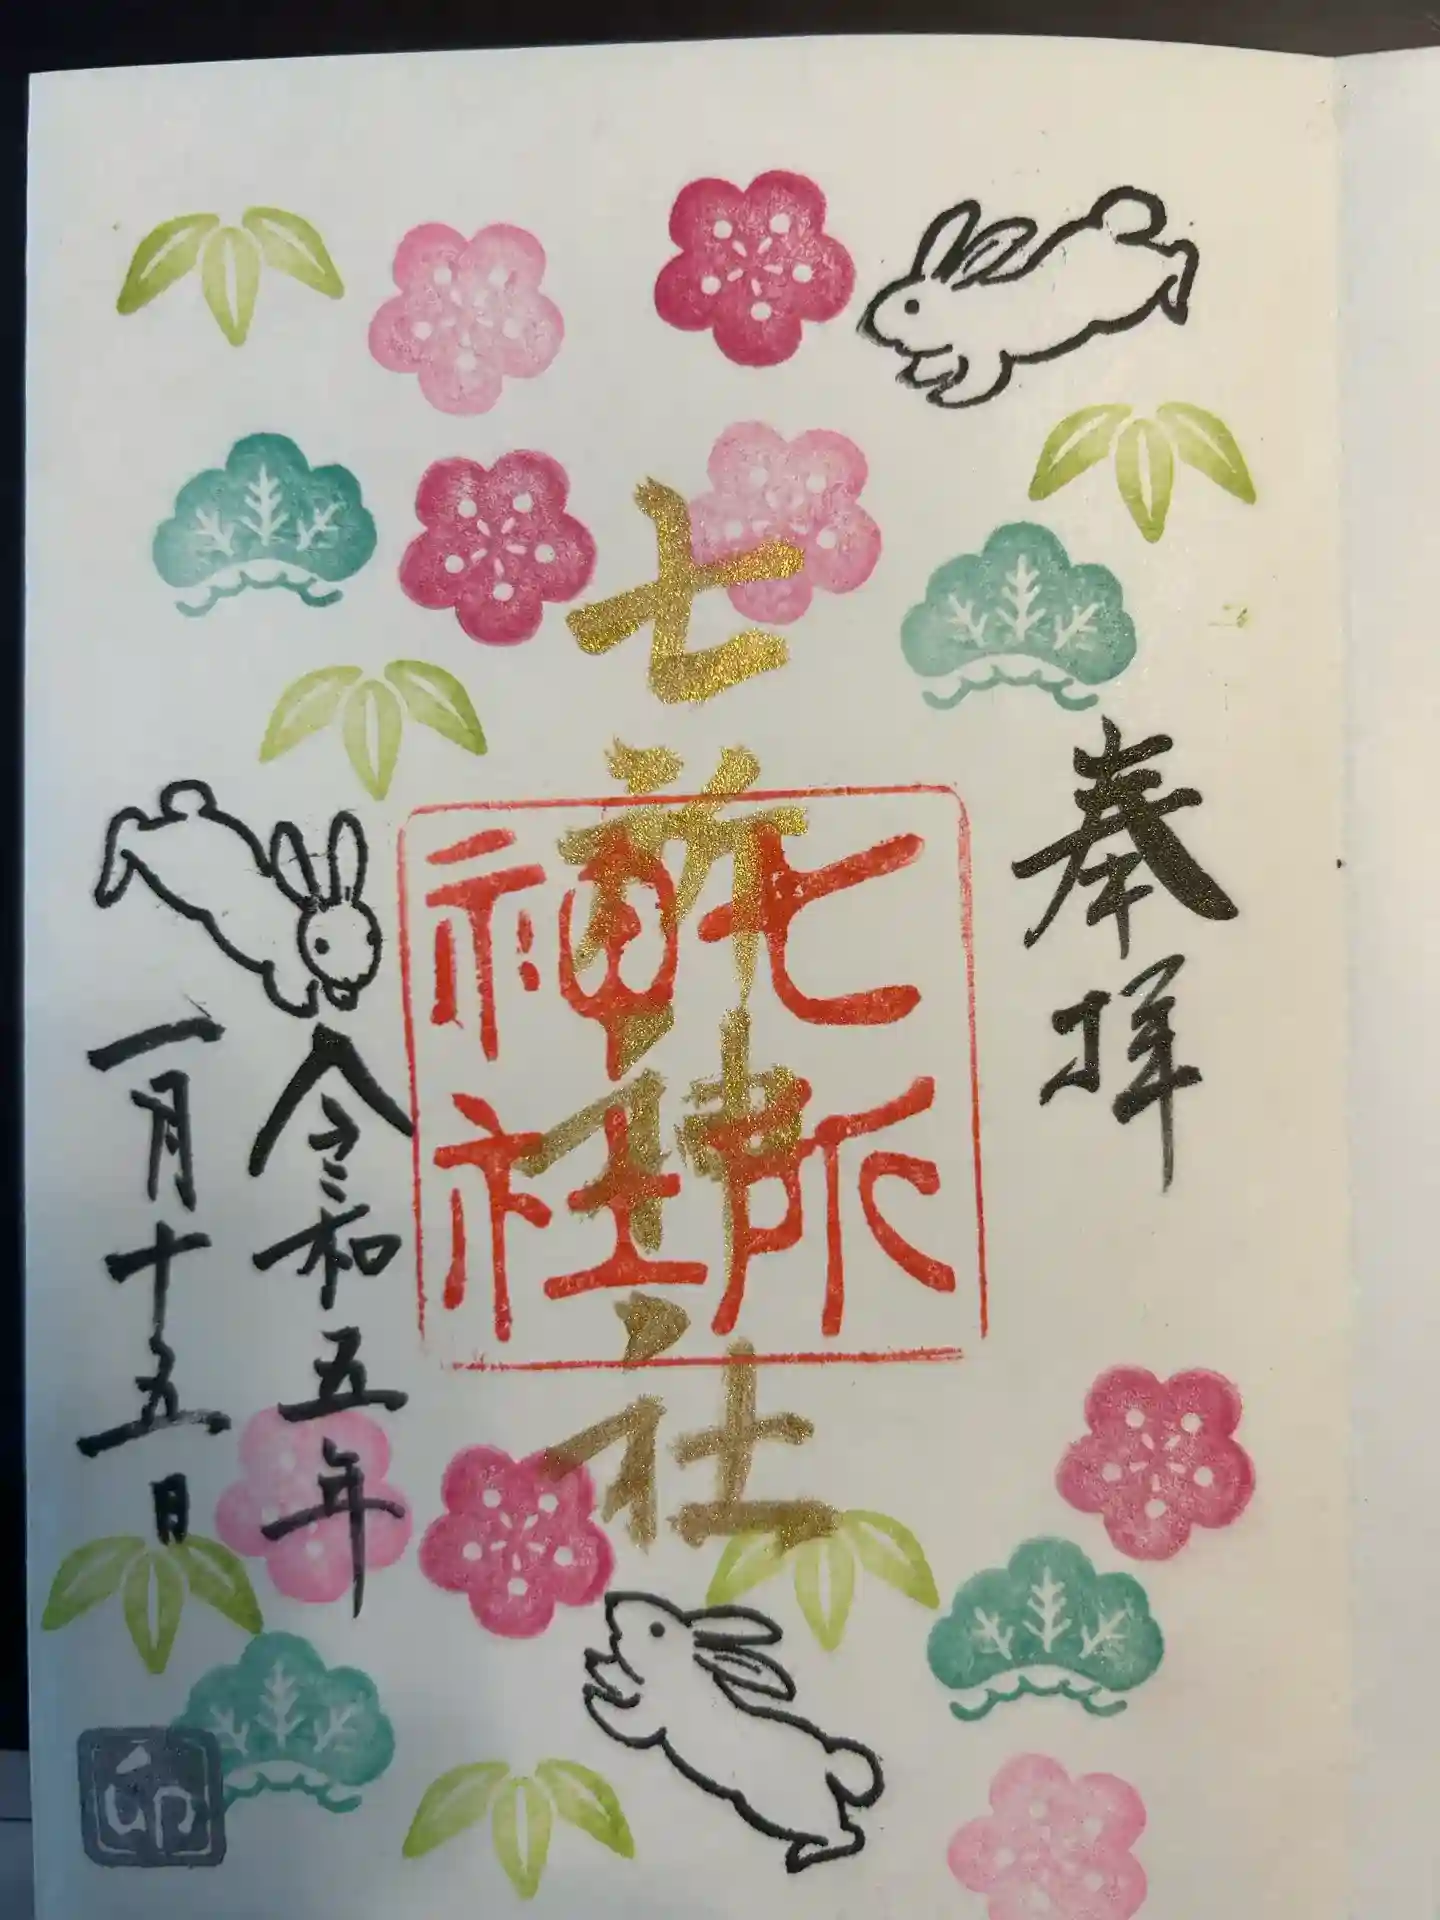 奉拝
七所神社
七所神社
令和五年
一月十五日
卯